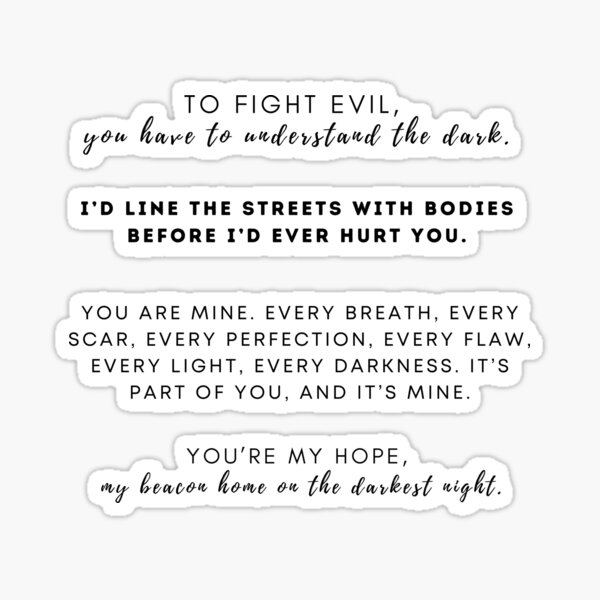 TO FIGHT EVIL,
you have to understand the dark.
I'D LINE THE STREETS WITH BODIES
BEFORE I'D EVER HURT YOU.
YOU ARE MINE. EVERY BREATH, EVERY
SCAR, EVERY PERFECTION, EVERY FLAW,
EVERY LIGHT, EVERY DARKNESS. IT'S
PART OF YOU, AND IT'S MINE.
YOU'RE MY HOPE,
my beacon home on the darkest night.